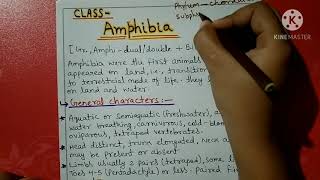 CLASS-
Phylum - chordata
subph
Amphibia
[Grk, Amphi - dual/double + Bi
Amphibia were the first animals
appeared on land, i.e., transition
to terrestrial mode of life. they
on land and water.
General characters:-
Aquatic or Semiaquatic (freshwater), a
water breathing, carnivorous, cold-bloo
oviparous, tetrapod vertebrates.
Head distinct, trunk elongated, Neck a
may be present or absent.
Limbs usually 2 pairs (tetrapod), some l
Toes 4-5 (Pentadactyle) or less. Paired fin
KINEMASTER